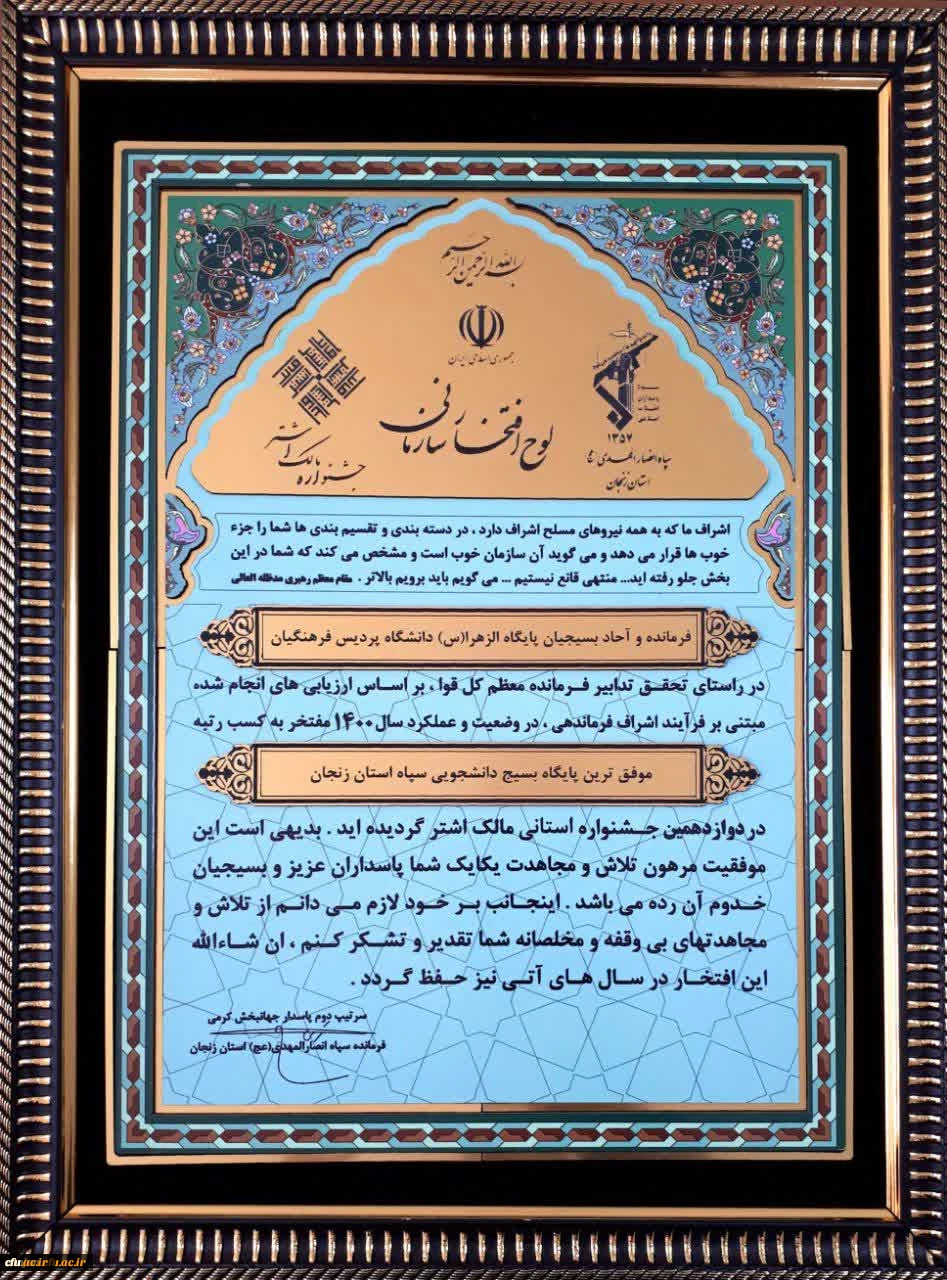 بسم الله الرحمن الرحیم
جمهوری اسلامی ایران
جشنواره مالک اشتر
لوح افتخار سازمانی
۱۳۵۷
سپاه انصارالمهدی (عج)
استان زنجان
اشراف ما که به همه نیروهای مسلح اشراف دارد ، در دسته بندی و تقسیم بندی ها شما را جزء
خوب ها قرار می دهد و می گوید آن سازمان خوب است و مشخص می کند که شما در این
بخش جلو رفته اید... منتهی قانع نیستیم ... می گویم باید برویم بالاتر . مقام معظم رهبری مدظله العالی
فرمانده و آحاد بسیجیان پایگاه الزهرا(س) دانشگاه پردیس فرهنگیان
در راستای تحقق تدابیر فرمانده معظم کل قوا ، بر اساس ارزیابی های انجام شده
مبتنی بر فرآیند اشراف فرماندهی ، در وضعیت و عملکرد سال ۱۴۰۰ مفتخر به کسب رتبه
موفق ترین پایگاه بسیج دانشجویی سپاه استان زنجان
در دوازدهمین جشنواره استانی مالک اشتر گردیده اید . بدیهی است این
موفقیت مرهون تلاش و مجاهدت یکایک شما پاسداران عزیز و بسیجیان
خدوم آن رده می باشد . اینجانب بر خود لازم می دانم از تلاش و
مجاهدتهای بی وقفه و مخلصانه شما تقدیر و تشکر کنم ، ان شاءالله
این افتخار در سال های آتی نیز حفظ گردد .
سرتیپ دوم پاسدار جهانبخش کرمی
فرمانده سپاه انصارالمهدی(عج) استان زنجان